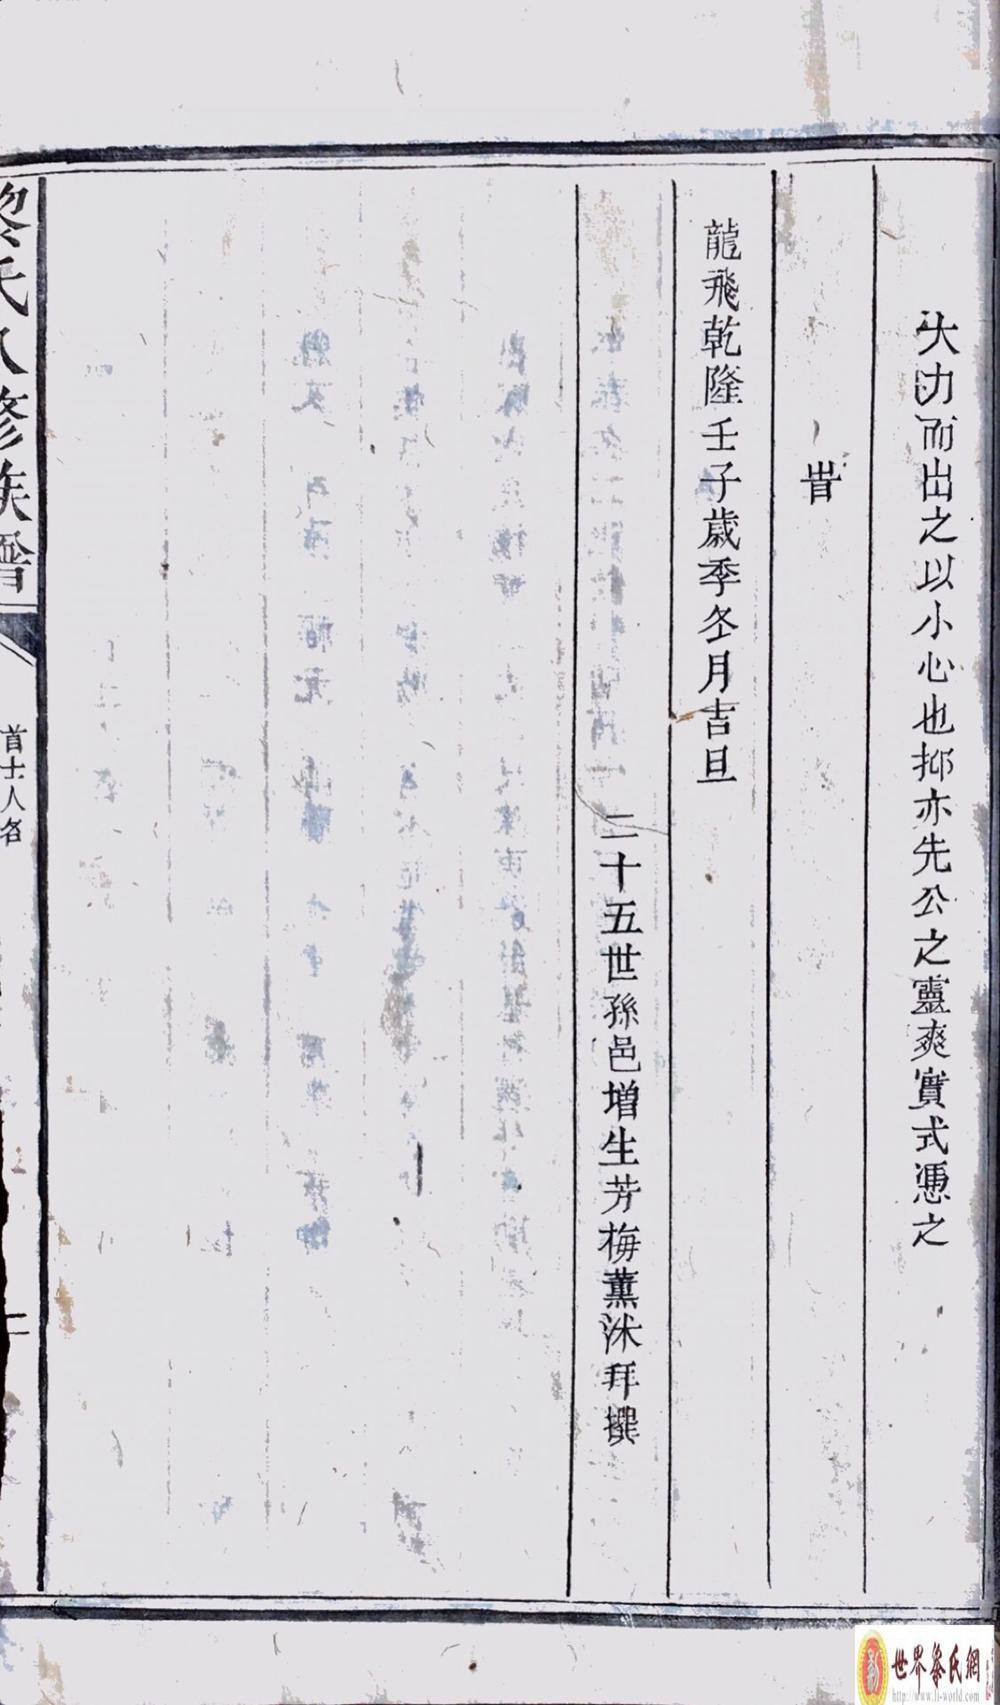 大力而出之以小心也抑亦先公之靈爽實式憑之
旹
龍飛乾隆壬子歲季冬月吉旦
二十五世孫邑增生芳梅薰沐拜撰
黎氏八修族譜
首士人名
二
世界黎氏網
http://www.li-world.com